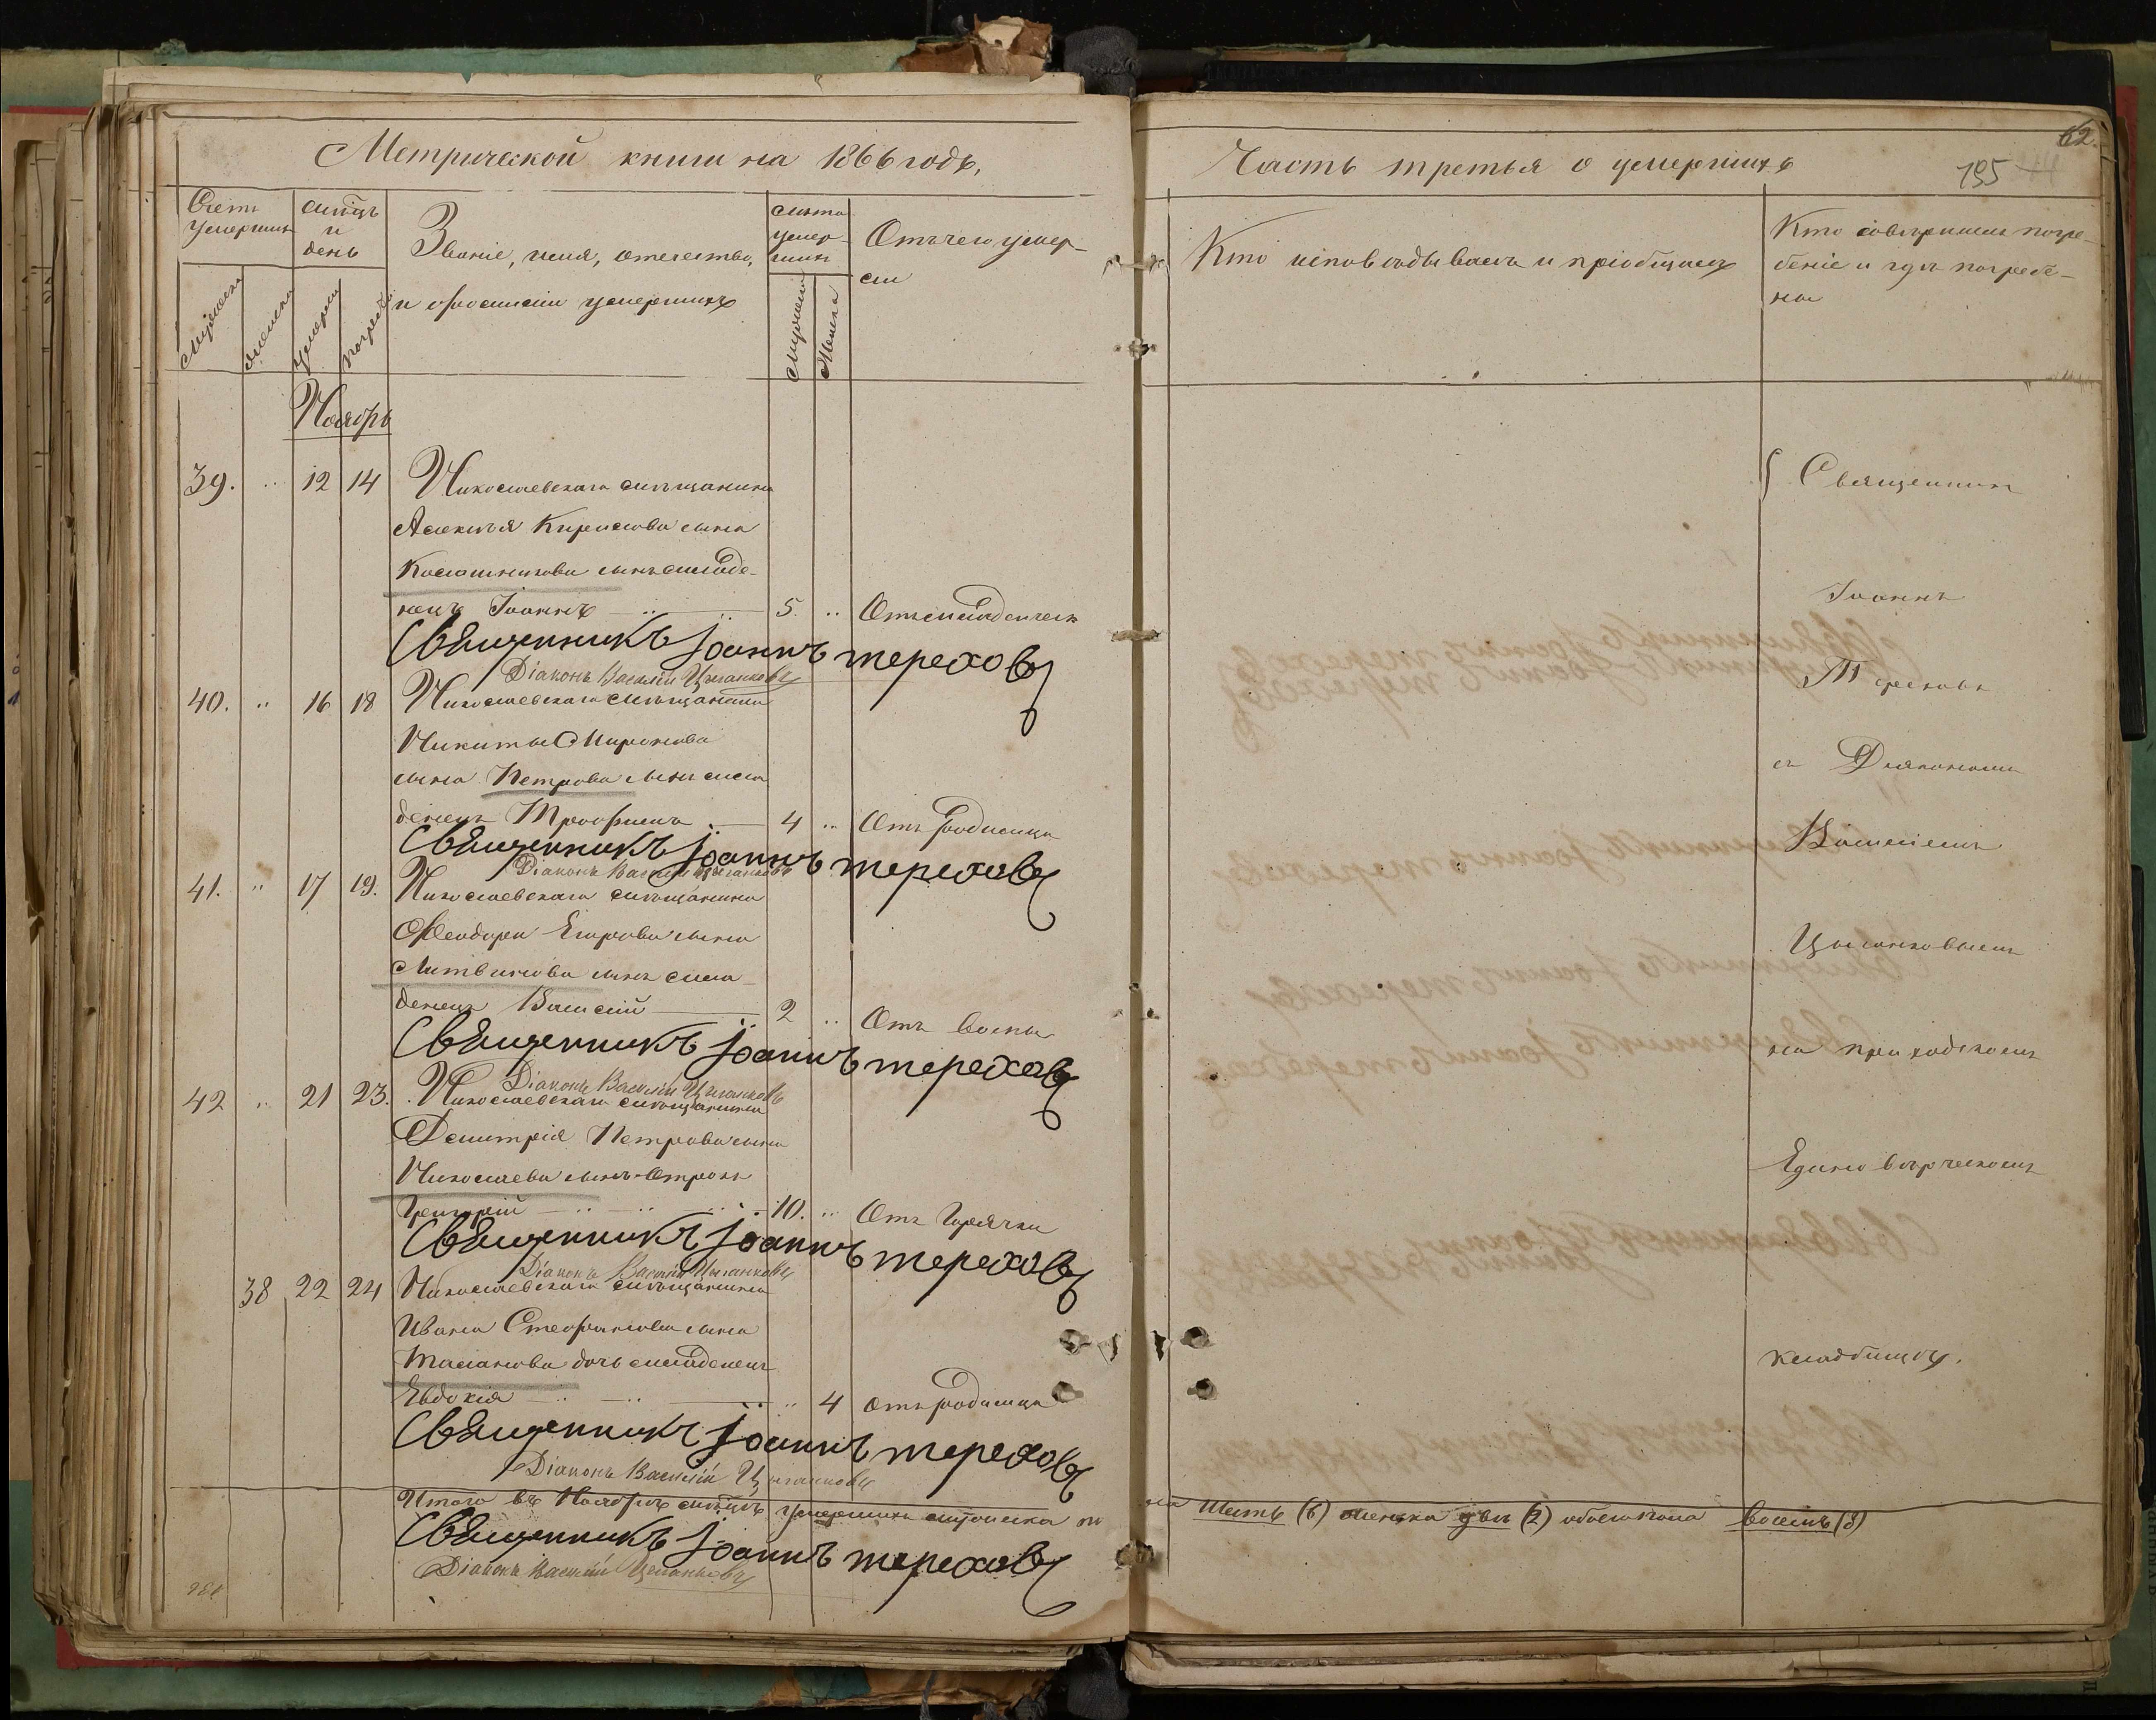 Метрической книги на 1866 годъ,
Счетъ умершихъ
Мѣсяцъ и день
Званіе, имя, отечество,
и фамиліи умершихъ
Лѣта умер-
шихъ
Отъ чего умер-
ли
Мужеска
Женска
Умерли
Погреб
Мужеска
Женска
Ноябрь
39. .. 12 14 Николаевскаго мѣщанина
Алексѣя Кирилова сына
Колашникова сынъ младе-
нецъ Іоаннъ 5. .. Отъ младенческ
Священникъ Іоаннъ Тереховъ
Діаконъ Василій Цыганковъ
40. .. 16 18 Николаевскаго мѣщанина
Никиты Миронова
сына Петрова сынъ мла
денецъ Трофимъ 4 .. Отъ родимца
Священникъ Іоаннъ Тереховъ
Діаконъ Василій Цыганковъ
41. .. 17 19. Николаевскаго мѣщанина
Ѳеодора Егорова сына
Литвинова сынъ мла
денецъ Василій 2 .. Отъ воспы
Священникъ Іоаннъ Тереховъ
Діаконъ Василій Цыганковъ
42 .. 21 23. Николаевскаго мѣщанина
Димитрія Петрова сына
Николаева сынъ Отрокъ
Григорій 10. .. Отъ Горячки
Священникъ Іоаннъ Тереховъ
Діаконъ Василій Цыганковъ
38 22 24 Николаевскаго мѣщанина
Ивана Стефанова сына
Таланова дочь младенецъ
Евдокія .. 4 Отъ родимца
Священникъ Іоаннъ Тереховъ
Діаконъ Василій Цыганковъ
Итого въ Ноябрѣ мѣсяцѣ умершихъ мужеска по
Священникъ Іоаннъ Тереховъ
Діаконъ Василій Цыганковъ
62.
195
Часть третья о умершихъ
Кто исповѣдывалъ и пріобщалъ
Кто совершилъ погре-
беніе и гдѣ погребе-
ны
Священникъ
Іоаннъ
Тереховъ
съ Діакономъ
Василіемъ
Цыганковымъ
на приходскомъ
Единовѣрческомъ
кладбищѣ.
ла шесть (6) женска двѣ (2) обоего пола восемь (8)